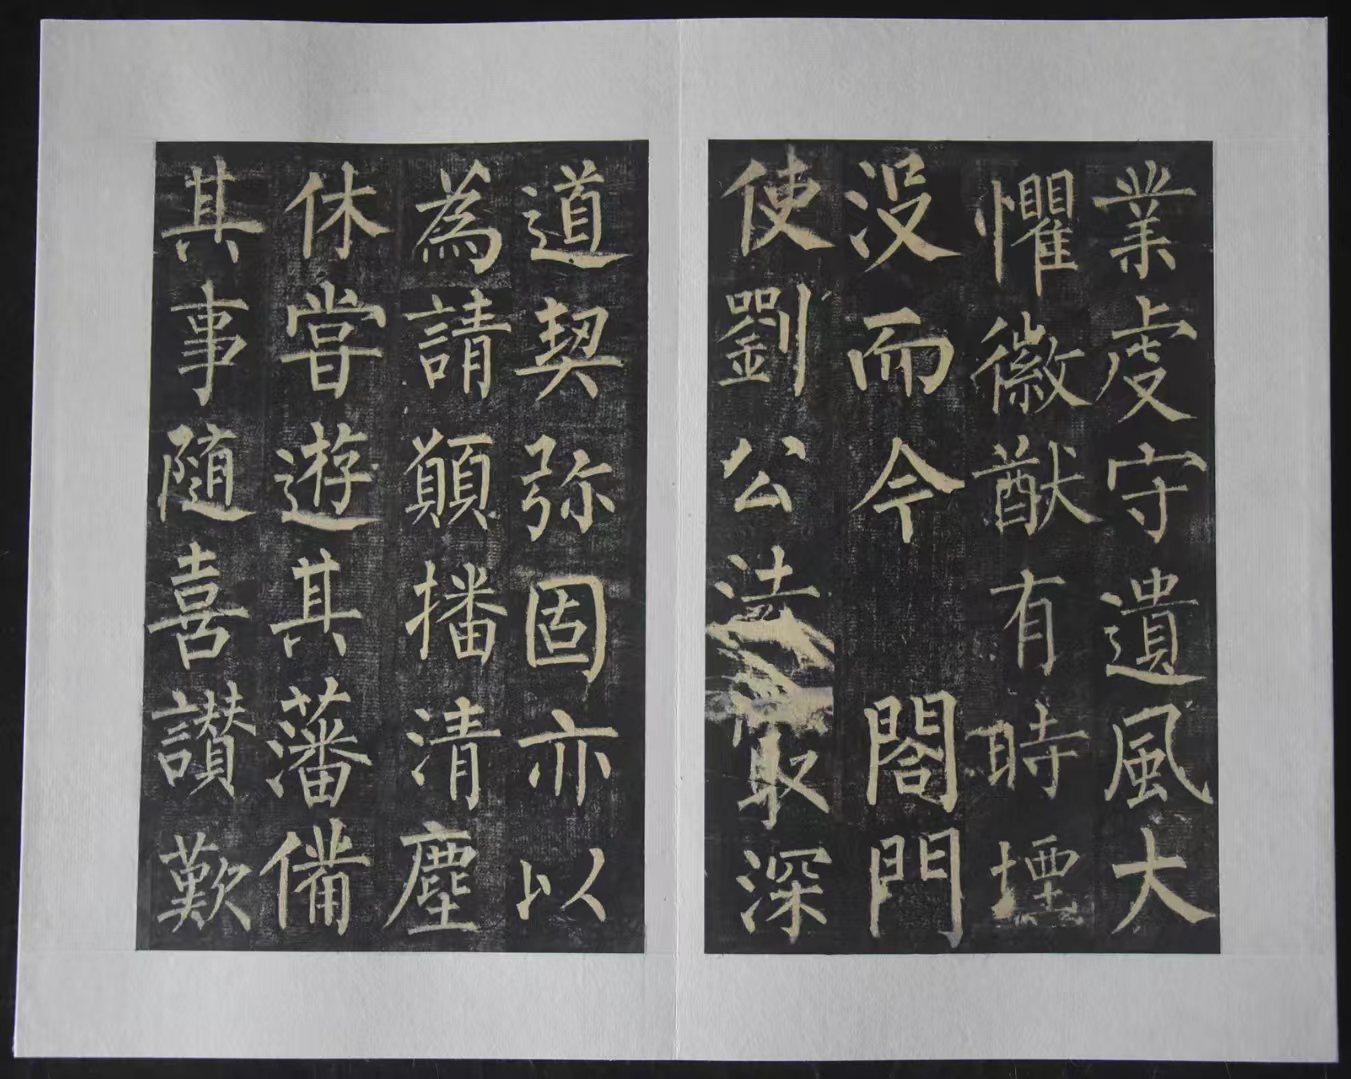 業虔守遺風大
懼徽猷有時堙
沒而今 閤門
使劉公法最深
道契弥固亦以
為請願播清塵
休嘗遊其藩備
其事隨喜讚歎